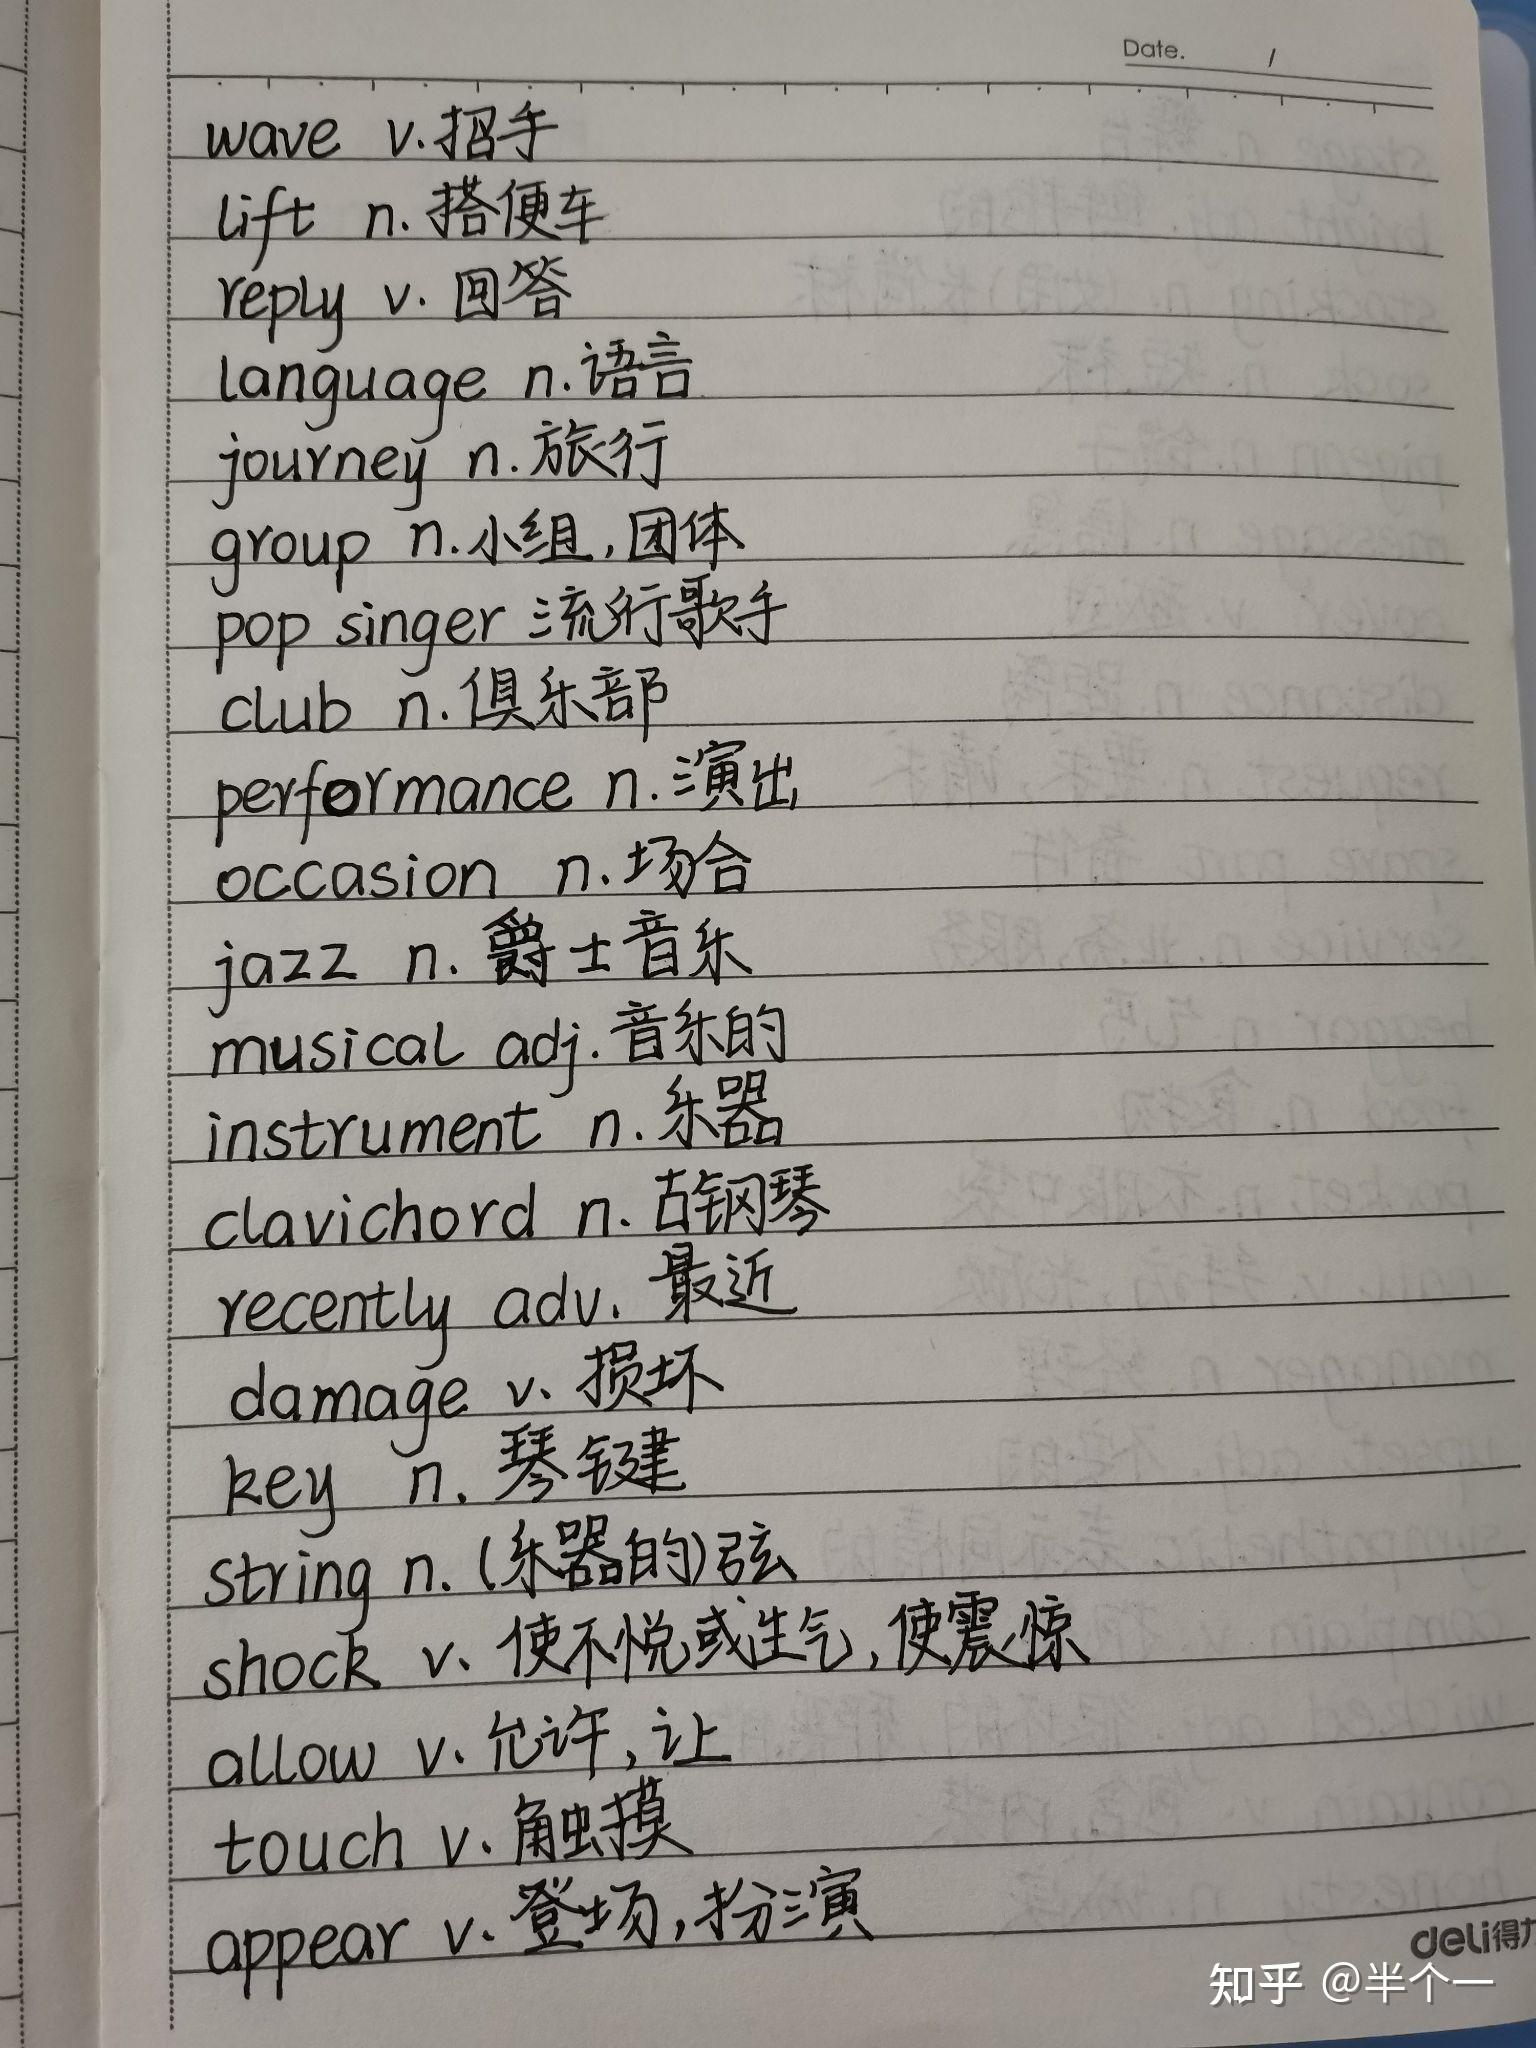 Date. /
wave v. 招手
lift n. 搭便车
reply v. 回答
language n. 语言
journey n. 旅行
group n. 小组,团体
pop singer 流行歌手
club n. 俱乐部
performance n. 演出
occasion n. 场合
jazz n. 爵士音乐
musical adj. 音乐的
instrument n. 乐器
clavichord n. 古钢琴
recently adv. 最近
damage v. 损坏
key n. 琴键
string n. (乐器的)弦
shock v. 使不悦或生气,使震惊
allow v. 允许,让
touch v. 触摸
appear v. 登场,扮演
deli得力
知乎 @半个一